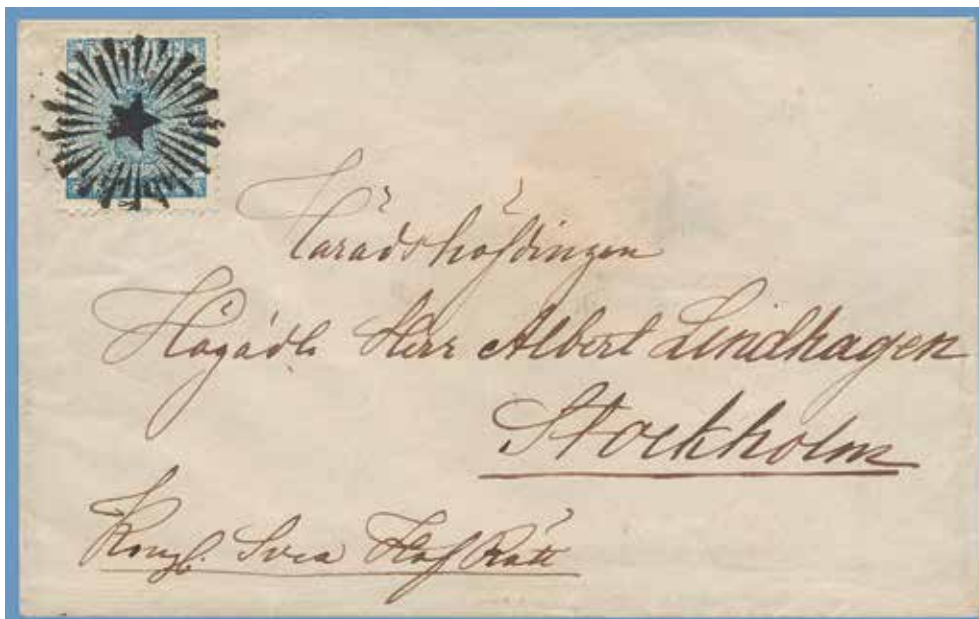 Häradshöfdingen
Högädle Herr Albert Lindhagen
Stockholm
Kongl. Svea Hof Rätt